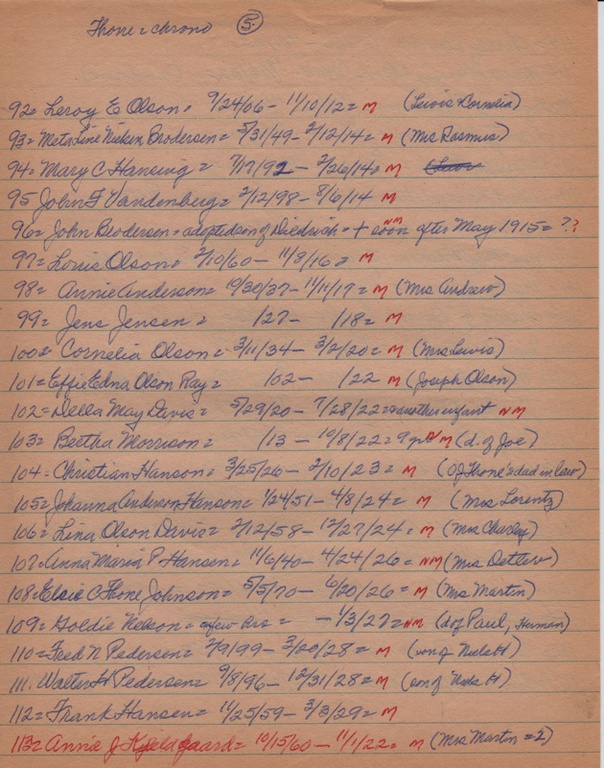 Thone = chrono (5.)
92 = Leroy E Olson = 9/24/06 - 11/10/12 = M (Lewis Cornelia)
93 = Meta Line Nicksen Brodersen = 5/31/49 - 2/12/14 = M (Mrs Rasmus)
94 = Mary C Hansing = 7/17/92 - 2/26/14 = M
95 John F Vandenburg = 2/12/98 - 8/6/14 M
96 = John Brodersen = adopted son of Diedrich = + soon after May 1915 = ?? NM
97 = Louis Olson = 2/10/60 - 11/8/16 = M
98 = Annie Anderson = 10/30/37 - 11/11/17 = M (Mrs Andrew)
99 = Jens Jensen = /27 - /18 = M
100 = Cornelia Olson = 3/11/34 - 3/2/20 = M (Mrs Lewis)
101 = Effie Edna Olson Ray = /02 - /22 M (Joseph Olson)
102 = Della May Davis = 5/29/20 - 7/28/22 = another infant NM
103 = Bertha Morrison = /13 - 10/8/22 = 9 yr NM (d. of Joe)
104 - Christian Hanson = 3/25/26 - 2/10/23 = M (of Thone's dad in law)
105 = Johanna Anderson Hanson = 1/24/51 - 4/8/24 = M (Mrs Lorentz)
106 = Lina Olson Davis = 2/12/58 - 12/27/24 = M (Mrs Charley)
107 = Anna Maria P Hansen = 11/6/40 - 4/24/26 = NM (Mrs Detlev)
108 = Elsie C Thone Johnson = 5/5/70 - 6/20/26 = M (Mrs Martin)
109 = Goldie Nelson = a few hrs = - 1/3/27 = NM (d of Paul, Herman)
110 = Fred N Pedersen = 2/9/99 - 3/20/28 = M (son of Niels H)
111. Walter H Pedersen = 9/8/96 - 12/31/28 = M (son of Niels H)
112 = Frank Hansen = 11/25/59 - 3/3/29 = M
113 = Annie J Kjeldgaard = 10/15/60 - 11/1/22 = M (Mrs Martin = 2)